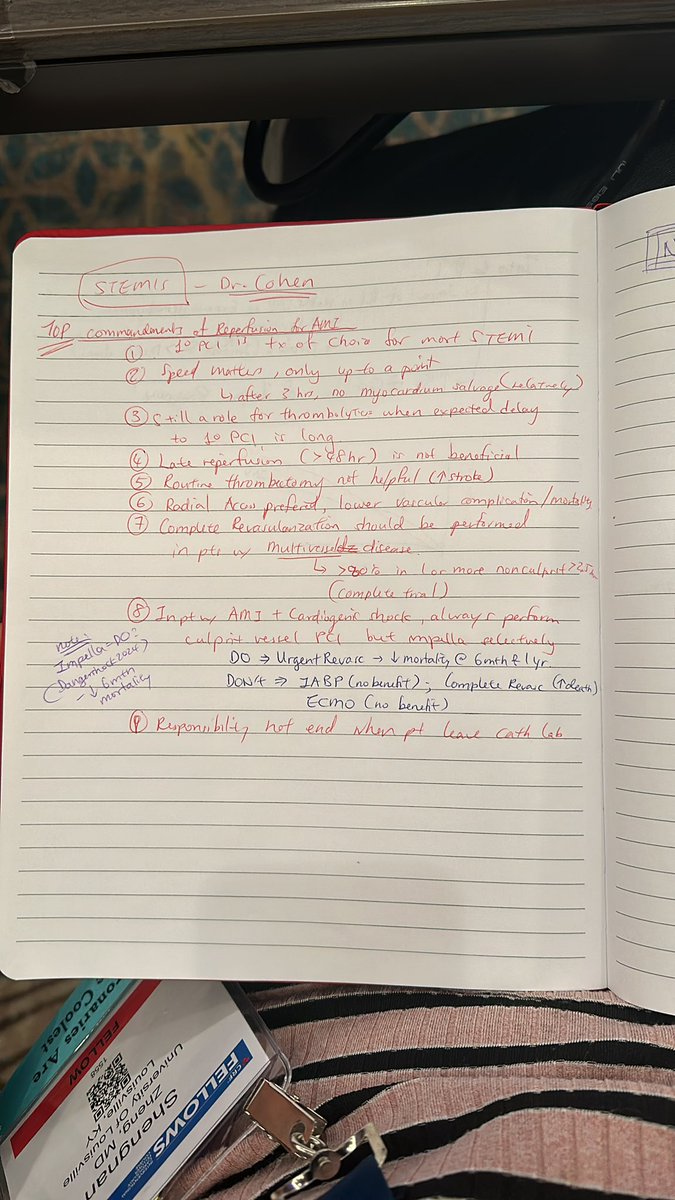 STEMIS - Dr. Cohen
TOP commandments of Reperfusion for AMI
① 1° PCI is tx of choice for most STEMI
② Speed matters, only up to a point
↳ after 3 hrs, no myocardium salvage (relatively)
③ Still a role for thrombolytics when expected delay
to 1° PCI is long.
④ Late reperfusion (>48hr) is not beneficial
⑤ Routine thrombectomy not helpful (↑ stroke)
⑥ Radial Access prefered, lower vascular complication/mortality
⑦ Complete Revascularization should be performed
in pts w/ multivessel disease.
↳ >80% in 1 or more nonculprit
(complete trial)
⑧ In pt w/ AMI + Cardiogenic shock, always perform
culprit vessel PCI but impella selectively
DO → Urgent Revasc → ↓ mortality @ 6mth & 1 yr.
DON'T ⇒ IABP (no benefit); Complete Revasc (↑ death)
ECMO (no benefit)
⑨ Responsibility not end when pt leave cath lab
note:
Impella = DO?
(Dangershock 2024)
- ↓ 6mth
mortality
N
Coronaries Are
Coolest
FELLOW
1558
CRF
FELLOWS
Shengnan
Zheng, MD
University Of Louisville
Louisville, KY